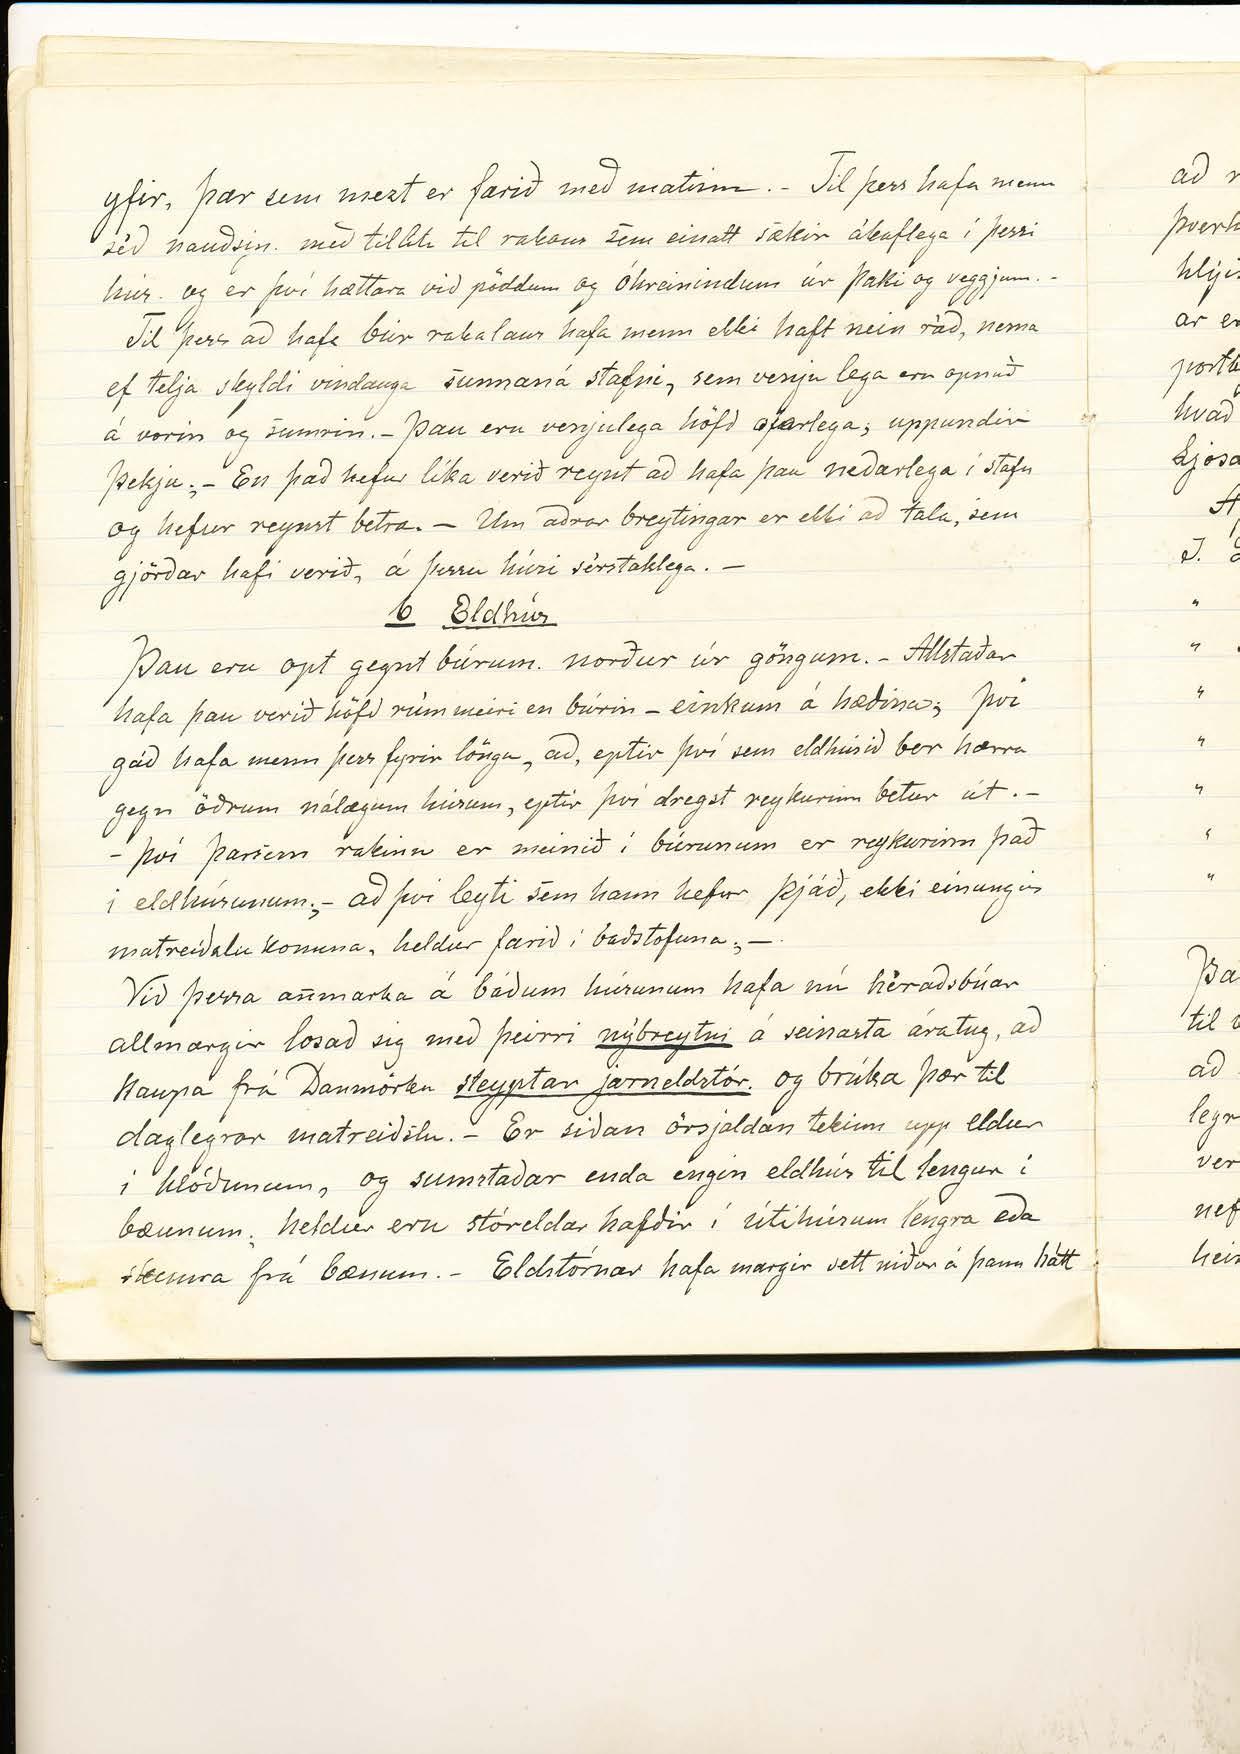 yfir, þar sem mezt er farið með matinn. - Til þess hafa menn
séð nauðsyn. með tilliti til rakans sem einatt sækir ákaflega í þessi
hús. og er því hættara við pöddum og óhreinindum úr þaki og veggjum. -
Til þess að hafa búr rakalaus hafa menn ekki haft nein ráð, nema
ef telja skyldi vindauga sunnaná stafni, sem venju lega eru opnuð
á vorin og sumrin. - Þau eru venjulega höfð ofarlega; uppundir
þekju; - En það hefur líka verið reynt að hafa þau neðarlega í stafn
og hefur reynst betra. - Um aðrar breytingar er ekki að tala, sem
gjörðar hafi verið, á þessu húsi sérstaklega. -
6 Eldhús
Þau eru opt gegnt búrum. norður úr göngum. - Allstaðar
hafa þau verið höfð rúmmeiri en búrin - einkum á hæðina; því
gáð hafa menn þess fyrir löngu, að, eptir því sem eldhúsið ber hærra
gegn öðrum nálægum húsum, eptir því dregst reykurinn betur út. -
- því þarsem rakinn er meinið í búrunum er reykurinn það
í eldhúsunum; - að því leyti sem hann hefur þjáð, ekki einungis
matreiðslu konuna, heldur farið í baðstofuna; -
Við þessa annmarka á báðum húsunum hafa nú héraðsbúar
allmargir losað sig með þeirri nýbreytni á seinasta áratug, að
kaupa frá Danmörku steyptar járneldstór. og brúka þær til
daglegrar matreiðslu. - Er síðan örsjaldan tekinn upp eldur
í hlóðunum, og sumstaðar enda engin eldhús til lengur í
bæunum; heldur eru stóreldar hafðir í útihúsum lengra eða
skemra frá bænum. - Eldstórnar hafa margir sett niður á þann hátt
að
þverh
hlýi
ar e
portb
hvað
kjósa
A
I.
"
"
"
"
"
"
"
Þa
til
að
legr
ver
nef
hei